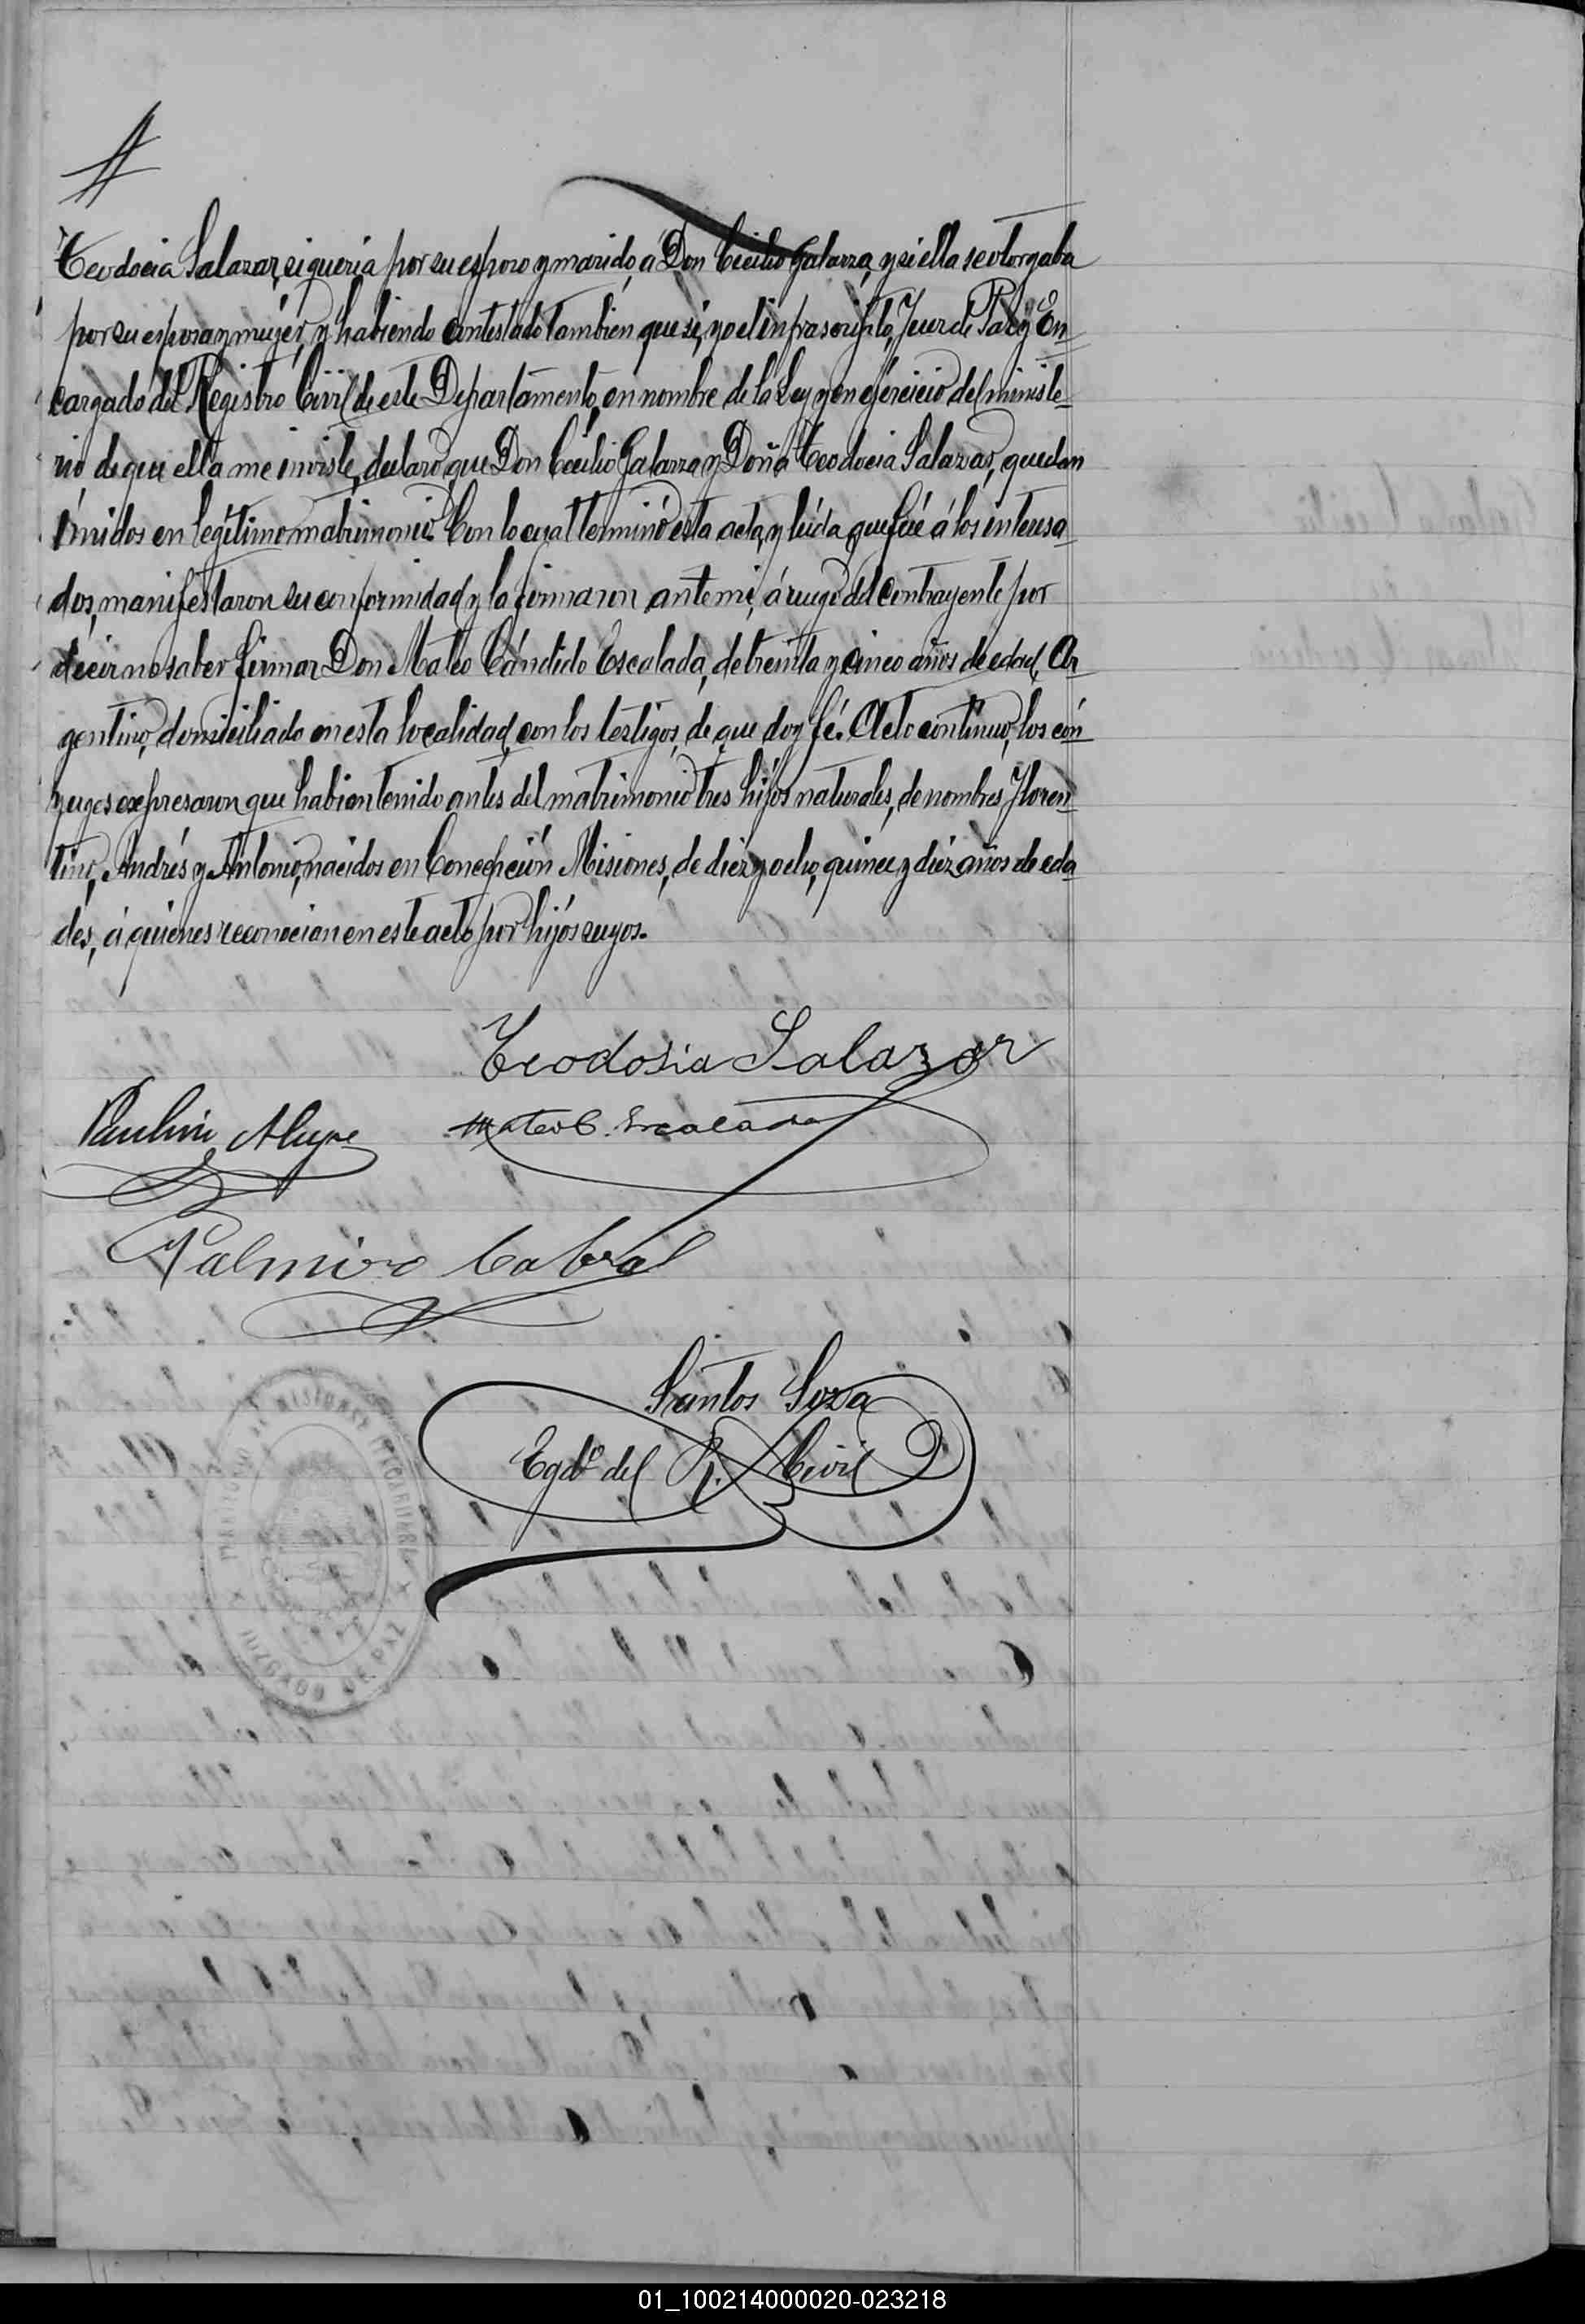 Teodocia Salazar, si queria por su esposo y marido, á Don Cecilio Galarza, y si ella se otorgaba
por su esposa y mujér, y habiendo contestado también que si, yo el infrascripto, Juez de Paz y En-
cargado del Registro Civil de este Departamento, en nombre de la Ley y en ejercicio del ministe-
rio de que ella me inviste, declaro que Don Cecilio Galarza y Doña Teodocia Salazar, quedan
únidos en legítimo matrimonio. Con lo cual terminó esta acta, y leída que fué á los interesa-
dos, manifestaron su conformidad y la firmaron ante mi, á ruego del contrayente por
decir no saber firmar Don Mateo Cándido Escalada, de treinta y cinco años de edad, Ar-
gentino, domiciliado en esta localidad, con los testigos, de que doy fé. Acto continuo, los cón-
yuges expresaron que habian tenido antes del matrimonio tres hijos naturales, de nombres Floren-
tino, Andrés y Antonio, nacidos en Concepción Misiones, de diez y ocho, quince y diez años de eda-
des, á quienes reconocian en este acto por hijos suyos.
Teodosia Salazar
Paulino Alegre Mateo C. Escalada
Palmiro Cabral
Santos Soza
Egdo del R. Civil
JUZGADO DE PAZ
01_100214000020-023218